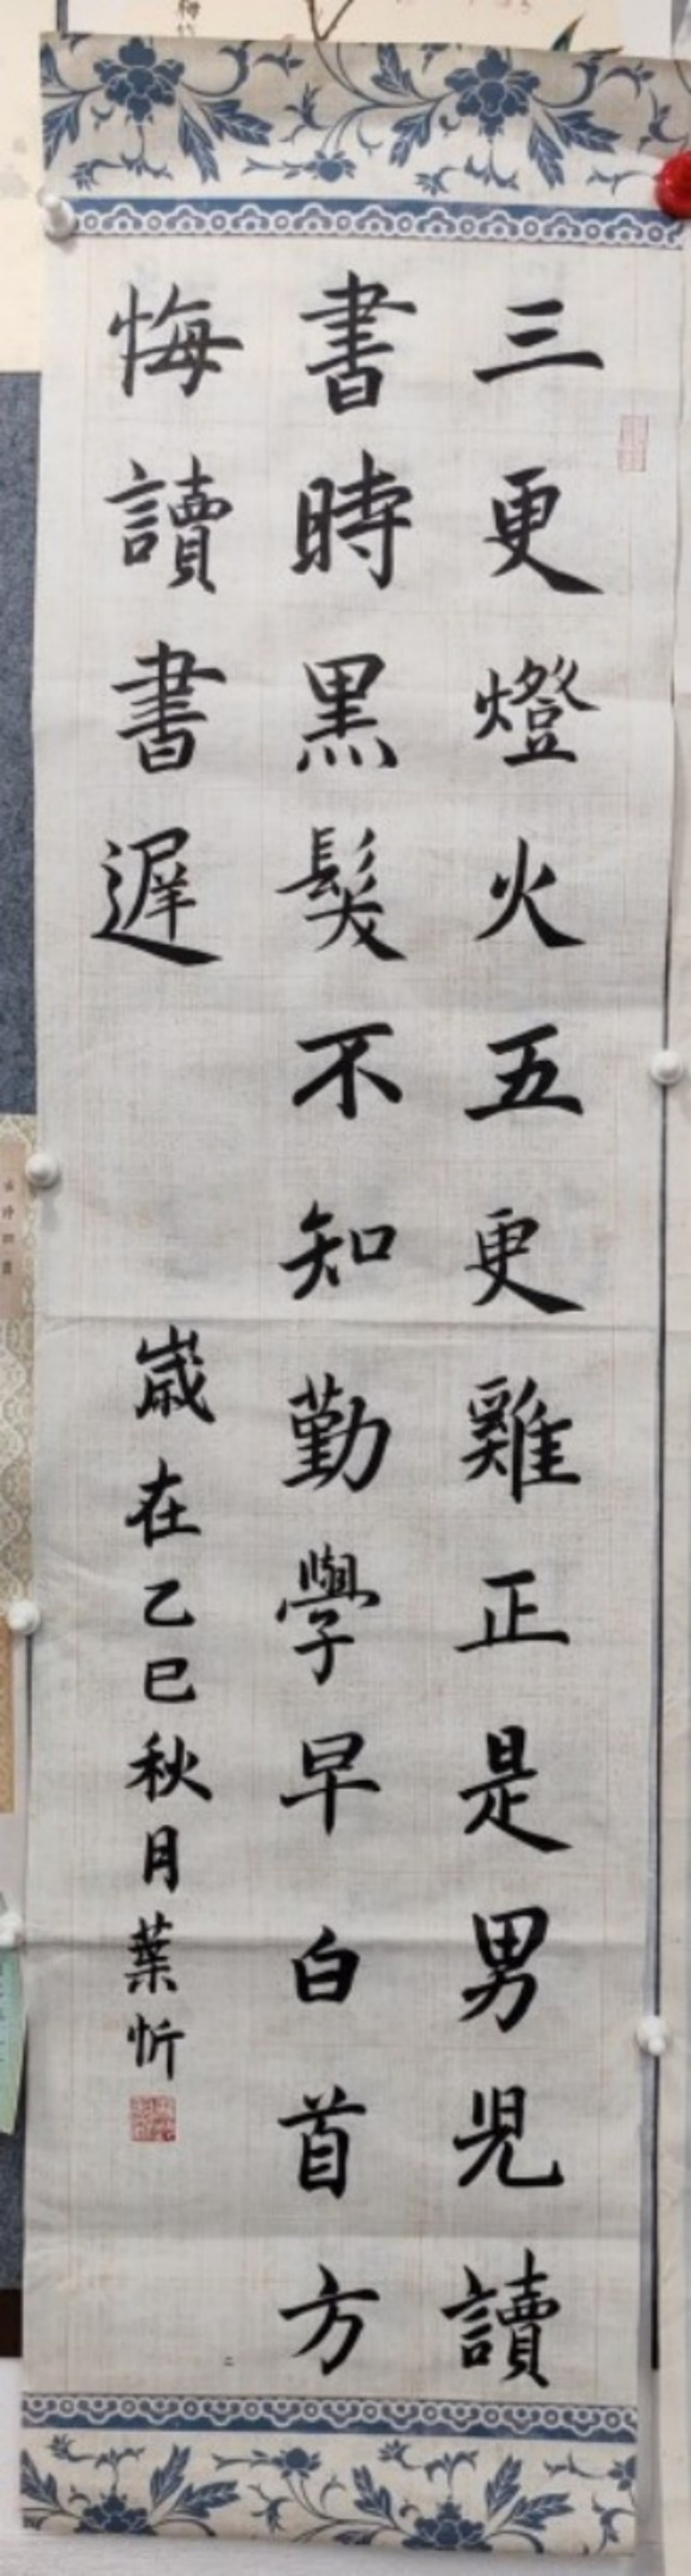 三更燈火五更雞正是男児讀
書時黒髮不知勤學早白首方
悔讀書遲
歲在乙巳秋月葉忻